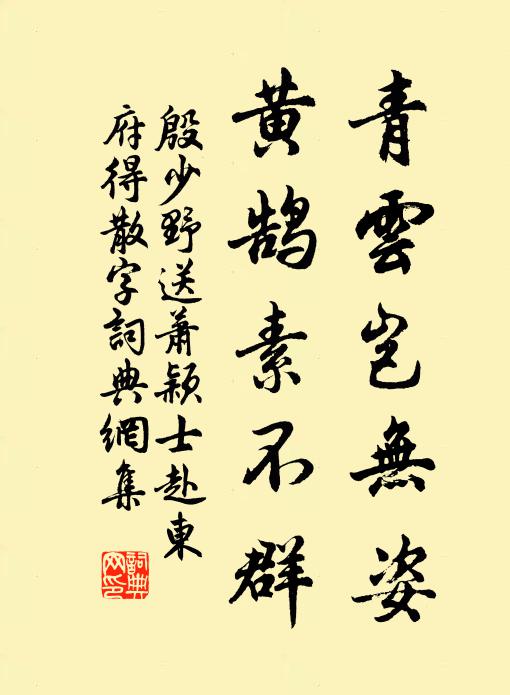 青雲岂無姿
黄鹄素不群
殷少野送萧颖士赴東
府得散字詞典網集
詞典
网印